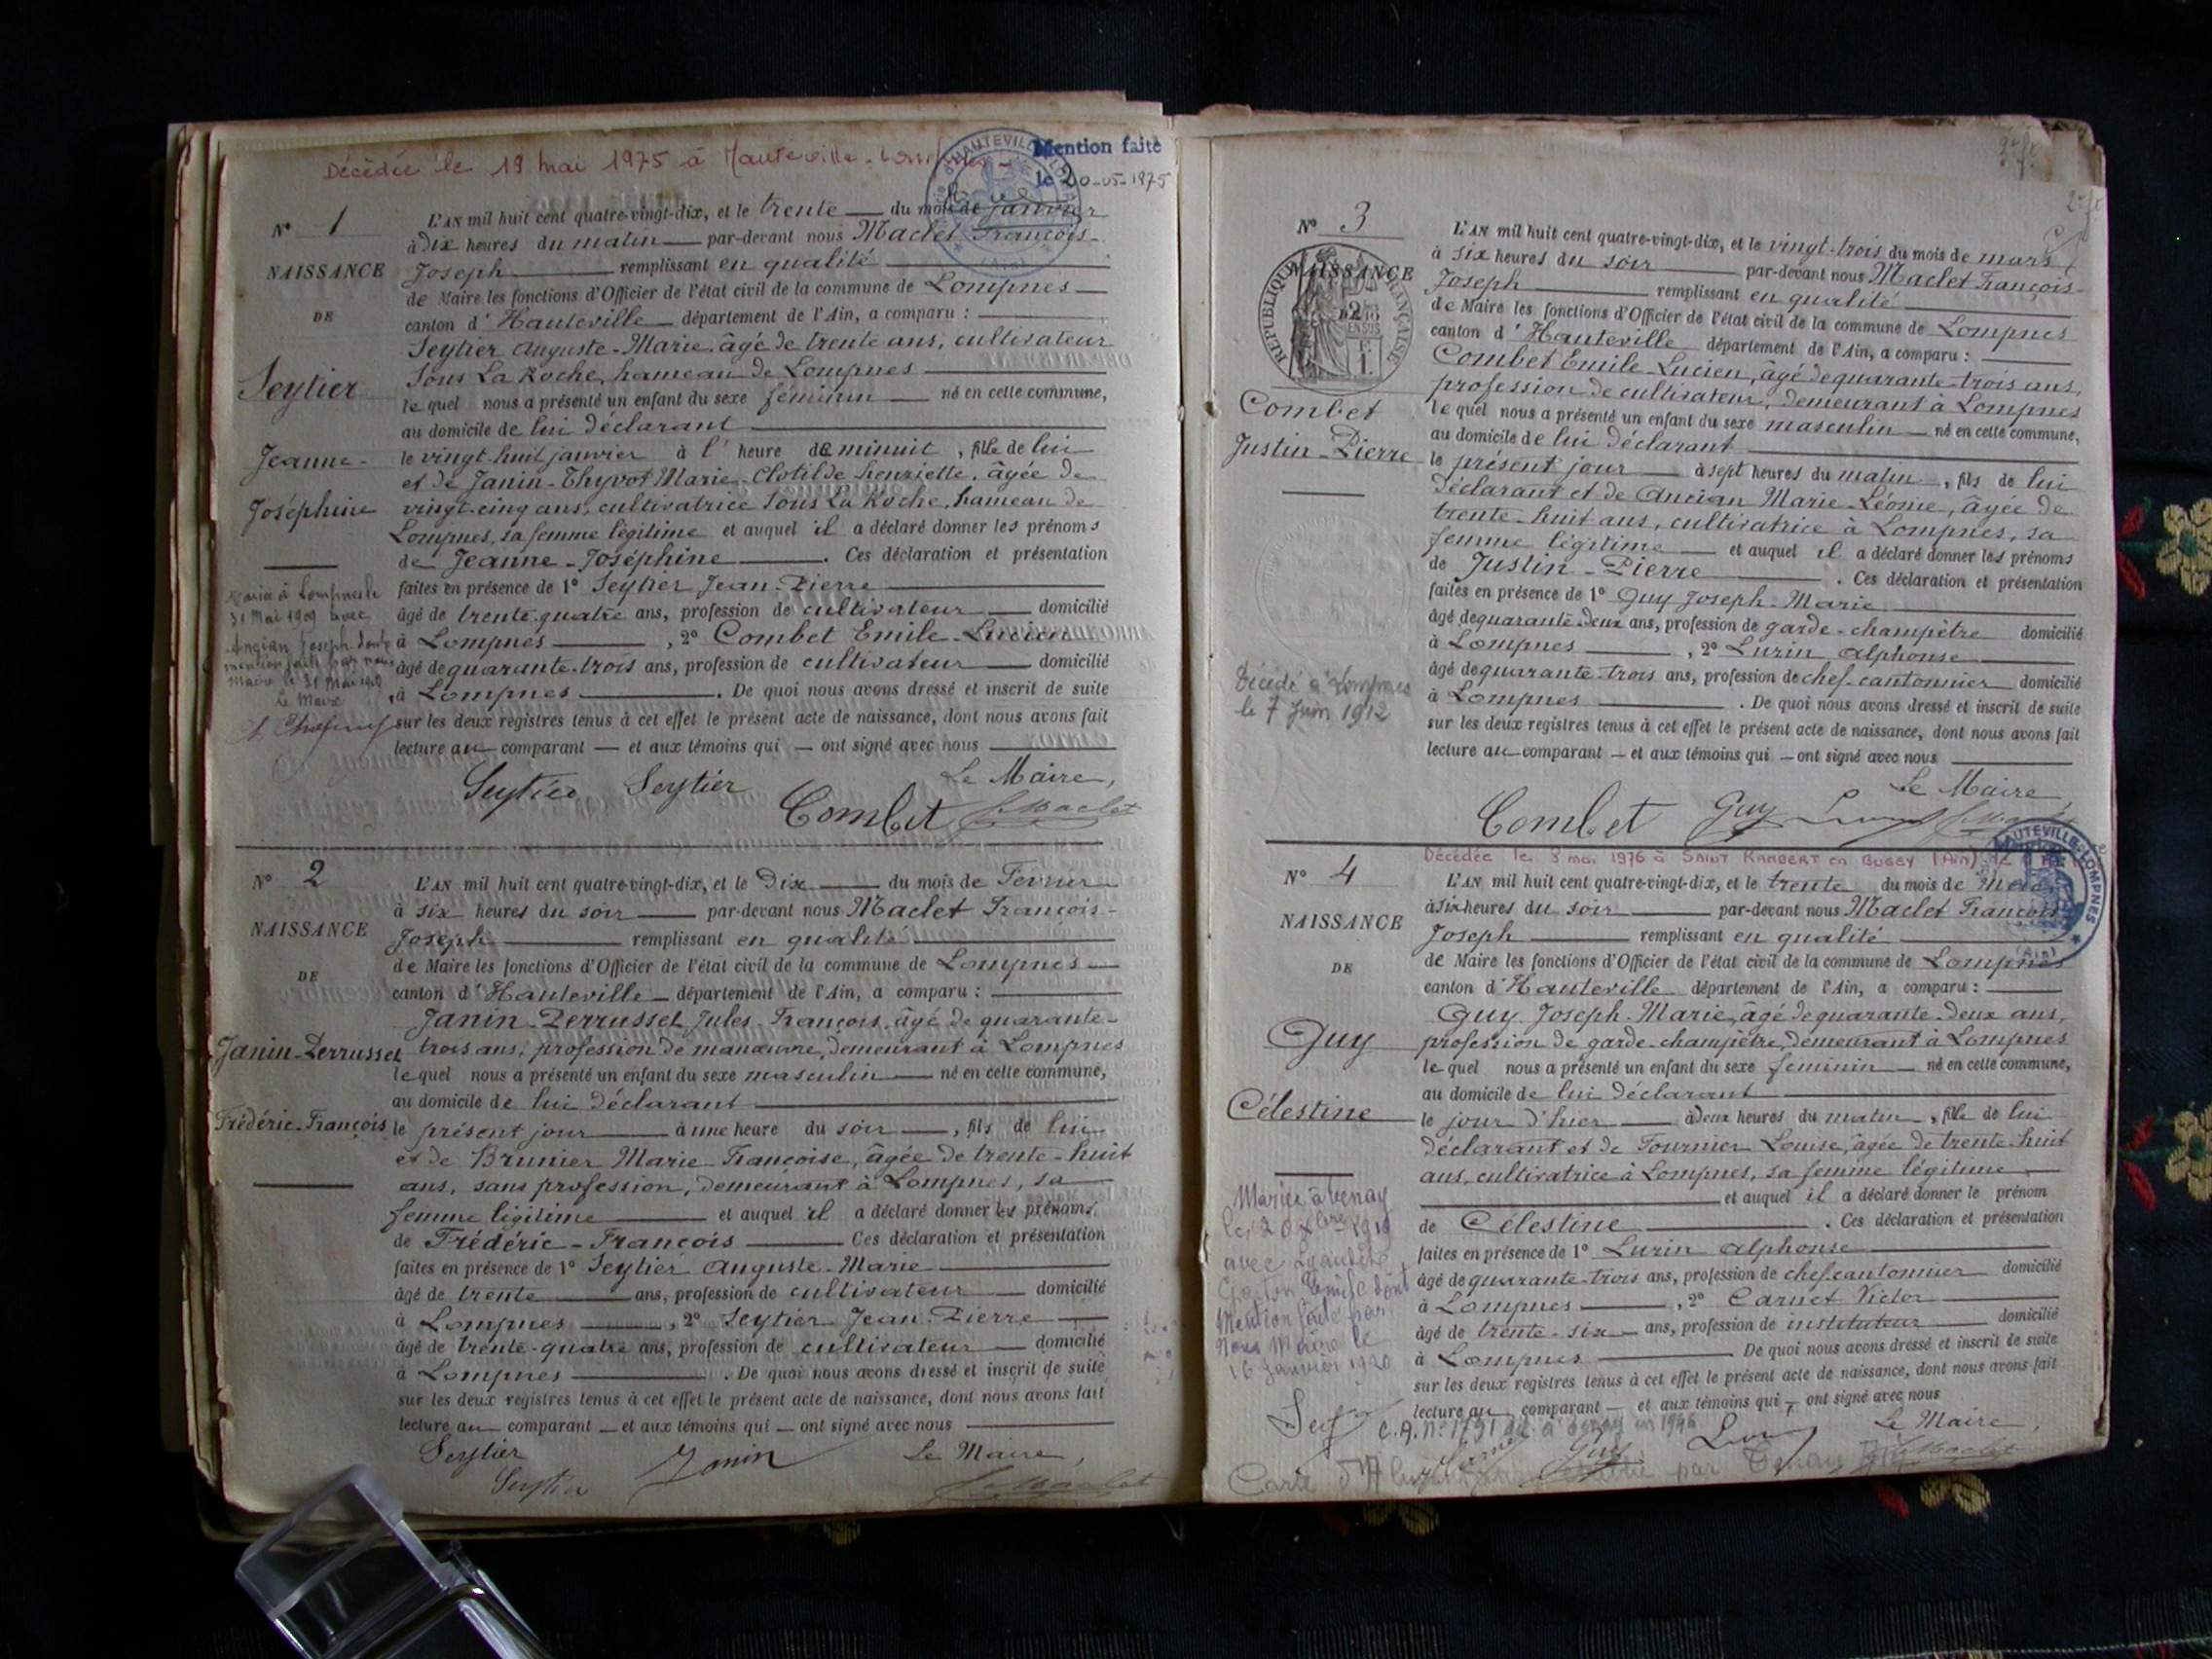 Décédée le 19 mai 1975 à Hauteville-
Mention faite
le 20-05-1975
N° 1
NAISSANCE
DE
Seytier
Jeanne-
Joséphine
Marié à Lompnes le
31 Mai 1909 avec
Ancian Joseph dont
mention faite par nous
Maire le 31 Mai 1909
Le Maire
L'AN mil huit cent quatre-vingt-dix, et le trente du mois de janvier
à dix heures du matin par-devant nous Maclet François-
Joseph remplissant en qualité
de Maire les fonctions d'Officier de l'état civil de la commune de Lompnes
canton d'Hauteville département de l'Ain, a comparu :
Seytier Auguste-Marie, âgé de trente ans, cultivateur
Sous La Roche, hameau de Lompnes
lequel nous a présenté un enfant du sexe féminin né en cette commune,
au domicile de lui déclarant
le vingt-huit janvier à l'heure de minuit, fille de lui
et de Janin-Thyvot Marie-Clotilde henriette, âgée de
vingt-cinq ans, cultivatrice Sous La Roche, hameau de
Lompnes, sa femme légitime et auquel il a déclaré donner les prénoms
de Jeanne-Joséphine. Ces déclaration et présentation
faites en présence de 1° Seytier Jean-Pierre
âgé de trente-quatre ans, profession de cultivateur domicilié
à Lompnes, 2° Combet Emile-Lucien
âgé de quarante-trois ans, profession de cultivateur domicilié
à Lompnes. De quoi nous avons dressé et inscrit de suite
sur les deux registres tenus à cet effet le présent acte de naissance, dont nous avons fait
lecture au comparant et aux témoins qui ont signé avec nous
Le Maire,
Seytier Seytier Combet Maclet
N° 2
NAISSANCE
DE
Janin-Perrusset
Frédéric-François
L'AN mil huit cent quatre-vingt-dix, et le Dix du mois de Février
à six heures du soir par-devant nous Maclet François-
Joseph remplissant en qualité
de Maire les fonctions d'Officier de l'état civil de la commune de Lompnes
canton d'Hauteville département de l'Ain, a comparu :
Janin-Perrusset Jules-François, âgé de quarante-
trois ans, profession de manœuvre, demeurant à Lompnes
lequel nous a présenté un enfant du sexe masculin né en cette commune,
au domicile de lui déclarant
le présent jour à une heure du soir, fils de lui
et de Brunier Marie-Françoise, âgée de trente-huit
ans, sans profession, demeurant à Lompnes, sa
femme légitime et auquel il a déclaré donner les prénoms
de Frédéric-François Ces déclaration et présentation
faites en présence de 1° Seytier Auguste-Marie
âgé de trente ans, profession de cultivateur domicilié
à Lompnes, 2° Seytier Jean-Pierre
âgé de trente-quatre ans, profession de cultivateur domicilié
à Lompnes. De quoi nous avons dressé et inscrit de suite
sur les deux registres tenus à cet effet le présent acte de naissance, dont nous avons fait
lecture au comparant et aux témoins qui ont signé avec nous
Seytier Janin Le Maire,
Seytier Maclet
N° 3
NAISSANCE
RÉPUBLIQUE FRANÇAISE
Combet
Justin-Pierre
Décédé à Lompnes
le 7 Juin 1912
L'AN mil huit cent quatre-vingt-dix, et le vingt-trois du mois de mars
à six heures du soir par-devant nous Maclet François-
Joseph remplissant en qualité
de Maire les fonctions d'Officier de l'état civil de la commune de Lompnes
canton d'Hauteville département de l'Ain, a comparu :
Combet Emile-Lucien, âgé de quarante-trois ans,
profession de cultivateur, demeurant à Lompnes
lequel nous a présenté un enfant du sexe masculin né en cette commune,
au domicile de lui déclarant
le présent jour à sept heures du matin, fils de lui
déclarant et de Ancian Marie-Léonie, âgée de
trente-huit ans, cultivatrice à Lompnes, sa
femme légitime et auquel il a déclaré donner les prénoms
de Justin-Pierre. Ces déclaration et présentation
faites en présence de 1° Guy Joseph-Marie
âgé de quarante-deux ans, profession de garde-champêtre domicilié
à Lompnes, 2° Lurin Alphonse
âgé de quarante-trois ans, profession de chef-cantonnier domicilié
à Lompnes. De quoi nous avons dressé et inscrit de suite
sur les deux registres tenus à cet effet le présent acte de naissance, dont nous avons fait
lecture au comparant et aux témoins qui ont signé avec nous
Le Maire
Combet Guy
Décédée le 8 mai 1976 à SAINT RAMBERT en BUGEY (Ain)
HAUTEVILLE-LOMPNES
(Ain)
N° 4
NAISSANCE
DE
Guy
Célestine
Mariée à Tenay
le 20 Xbre 1919
avec
Mention faite par
Nous Maire le
16 Janvier 1920
L'AN mil huit cent quatre-vingt-dix, et le trente du mois de Mars
à six heures du soir par-devant nous Maclet François
Joseph remplissant en qualité
de Maire les fonctions d'Officier de l'état civil de la commune de Lompnes
canton d'Hauteville département de l'Ain, a comparu :
Guy Joseph-Marie, âgé de quarante-deux ans,
profession de garde-champêtre, demeurant à Lompnes
lequel nous a présenté un enfant du sexe féminin né en cette commune,
au domicile de lui déclarant
le jour d'hier à deux heures du matin, fille de lui
déclarant et de Fournier Louise, âgée de trente-huit
ans, cultivatrice à Lompnes, sa femme légitime
et auquel il a déclaré donner le prénom
de Célestine. Ces déclaration et présentation
faites en présence de 1° Lurin Alphonse
âgé de quarante-trois ans, profession de chef-cantonnier domicilié
à Lompnes, 2° Carnet Victor
âgé de trente-six ans, profession de instituteur domicilié
à Lompnes De quoi nous avons dressé et inscrit de suite
sur les deux registres tenus à cet effet le présent acte de naissance, dont nous avons fait
lecture au comparant et aux témoins qui ont signé avec nous
Le Maire,
C.A. N° 1791 à Tenay en 1946
Guy Maclet
Carte par Tenay